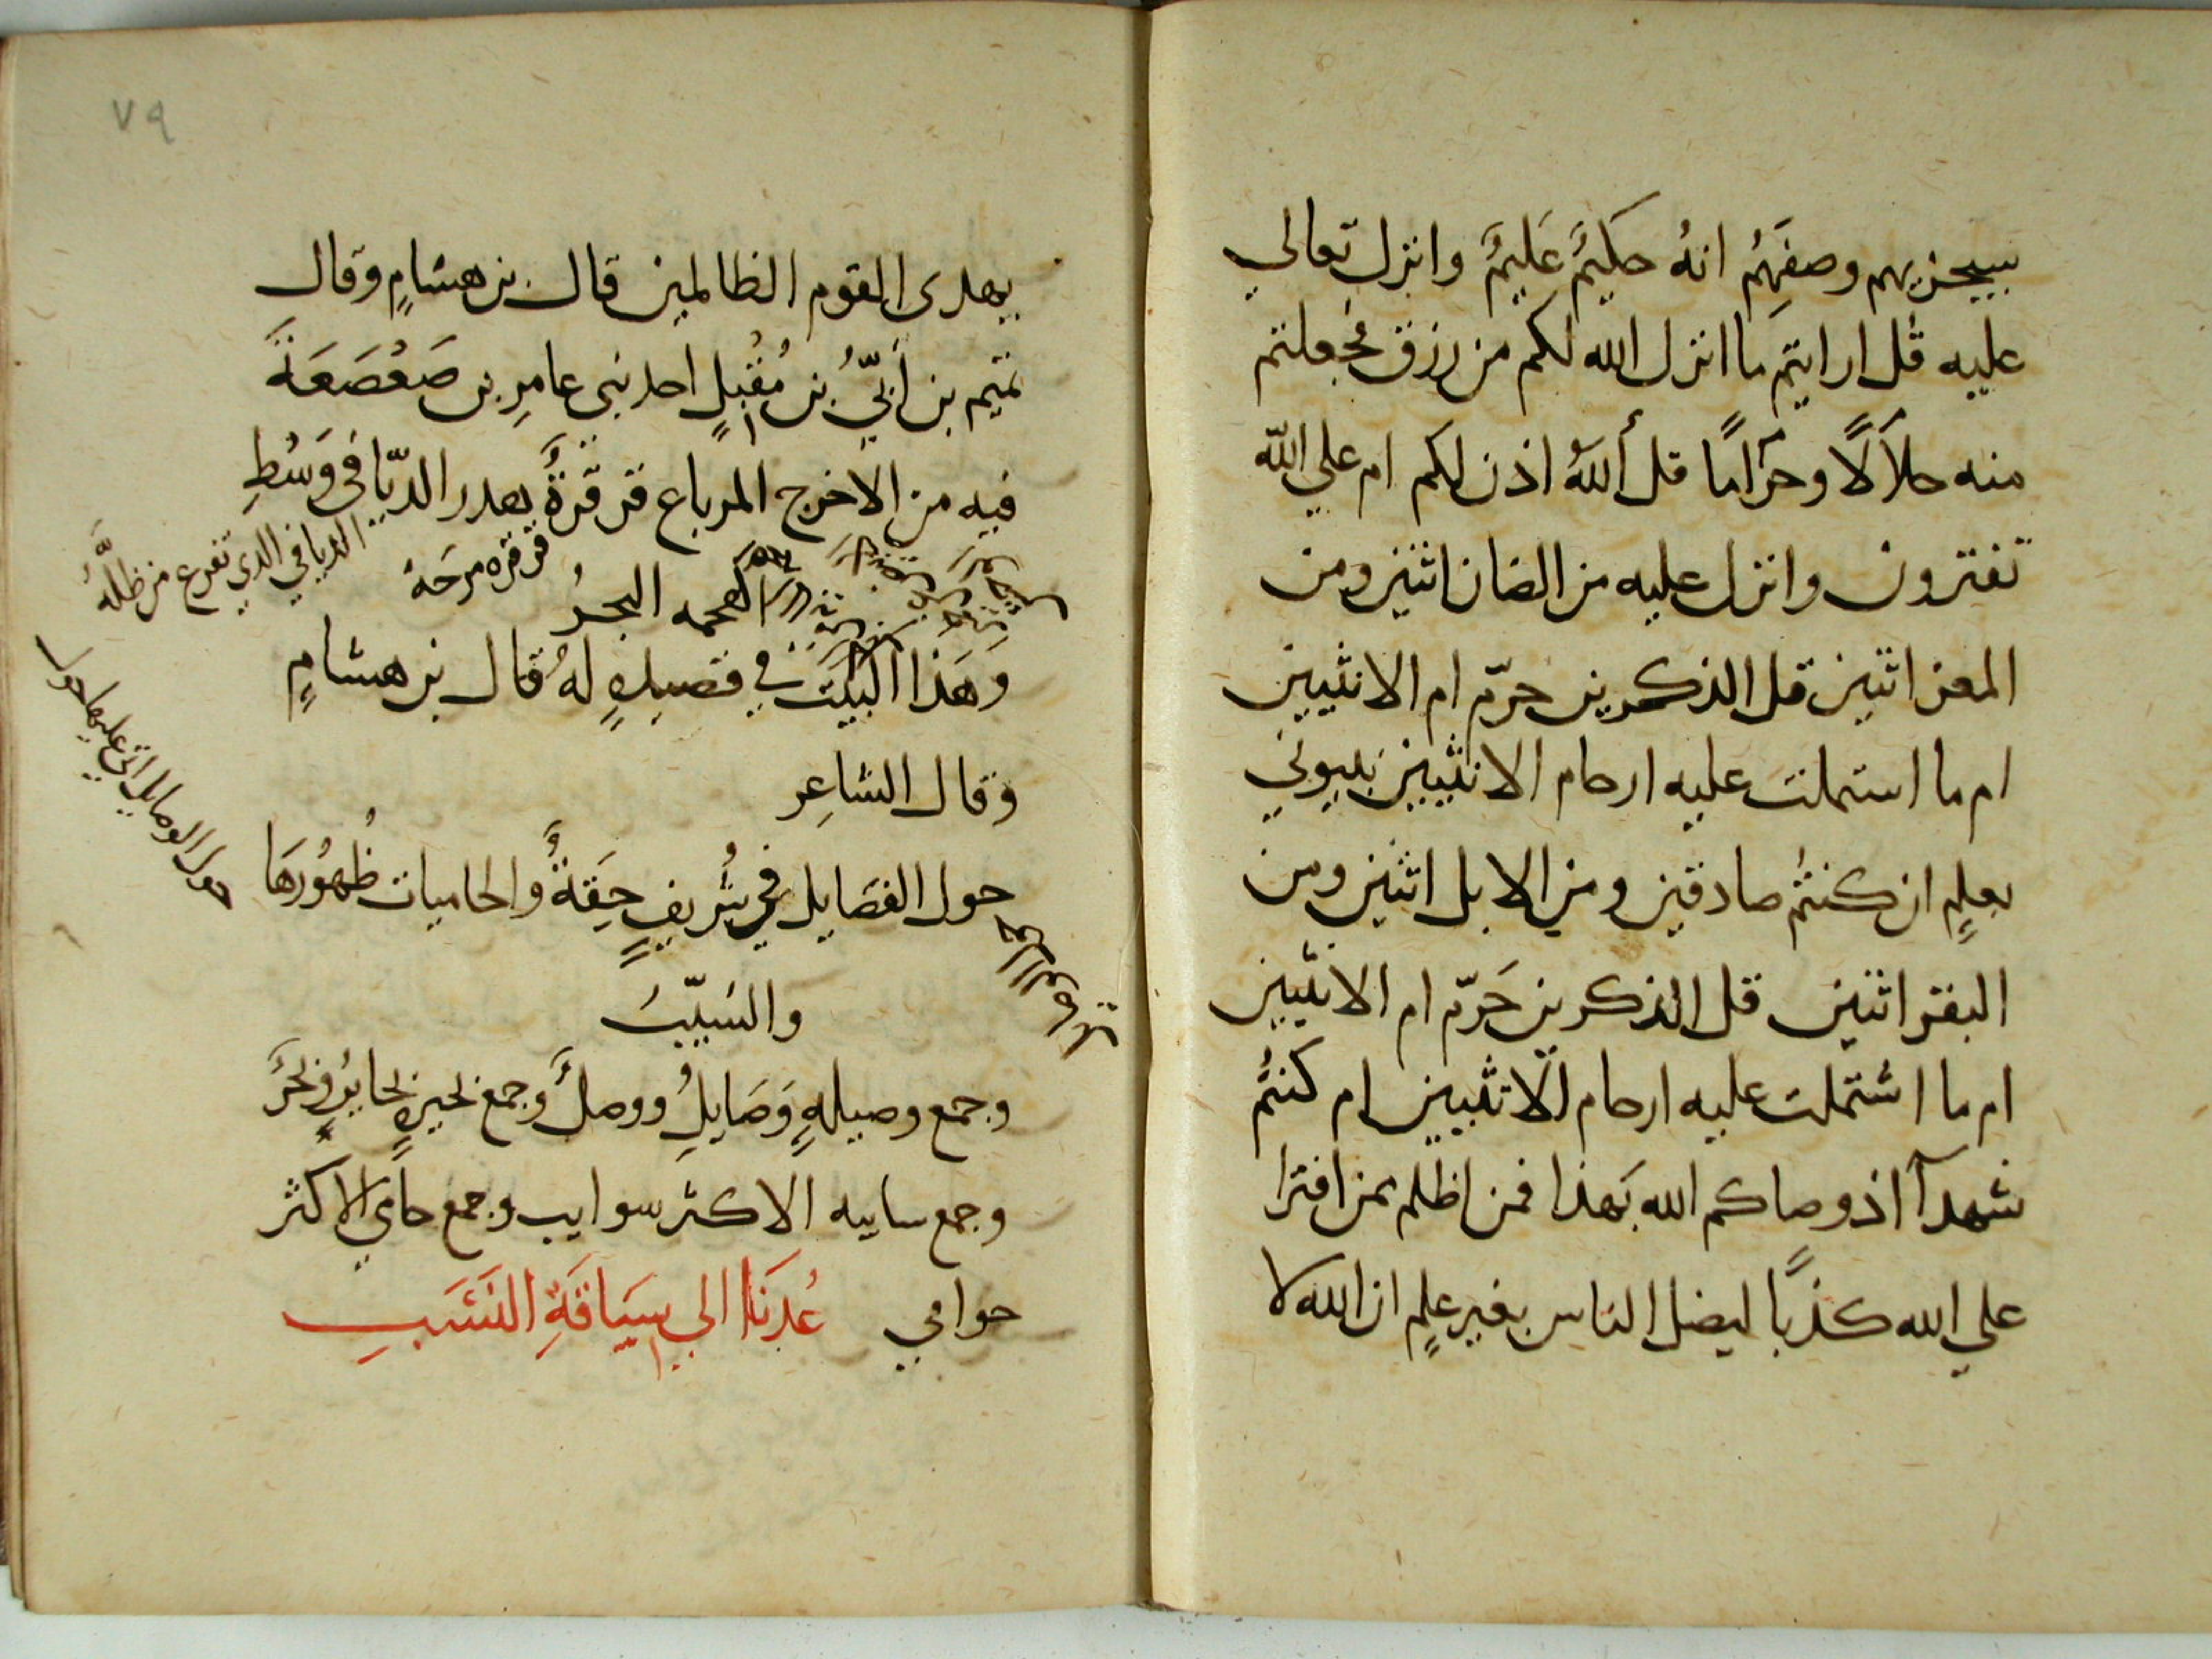 سيجزيهم وصفهُم انهُ حكيمٌ عَليمٌ وانزل تعالي
عليه قل ارايتم ما انزل الله لكم من رزق فجعلتم
منه حلاَلًا وحرَامًا قل أللهُ اذن لكم ام علي الله
تفترون وانزل عليه من الضان اثنين ومن
المعز اثنين قل الذكرين حرّم ام الانثيين
ام ما استملت عليه ارحام الانثيين نبيوني
بعلمٍ ان كنتُم صادقين ومن الابل اثنين ومن
البقر اثنين قل الذكرين حَرّم ام الانثيين
ام ما اشتملت عليه ارحام الانثيين ام كنتُم
شهدآ اذ وصاكم الله بَهذا فمن اظلم ممن افترا
علي الله كذبًا ليضل الناس بغير علمٍ ان الله لا
٧٩
يهدى القوم الظالمين قال بن هشامٍ وقال
تميم بن أبيّ بن مُقْبلٍ احد بنى عامرِ بن صَعْصَعَةَ
فيه من الاخرج المرباع قرقرةٌ بعدر الديّافى وَسْطِ
الديافي الذي تفرع من ظلهُ
قرقره مرحَهُ
الهجمه البحرُ
وَهَذا البيَتَ في قصيدهٍ لهُ قال بن هشامٍ
وقال الشاعِر
حول الوصايل التى عليها حولا
حول الفصَايل في شُريفٍ حِقَةٌ والحاميات ظُهُورهَا
والسَيّبَ
وجمع وصيلهٍ وَصَايلُ ووصلٌ وجمع بحيرهٍ بحايرُ وبحُرٌ
وجمع سايبه الاكثر سوايب وجمع حامي الاكثر
حوامي عُدنَا الي سيَاقَةِ النَسَبِ